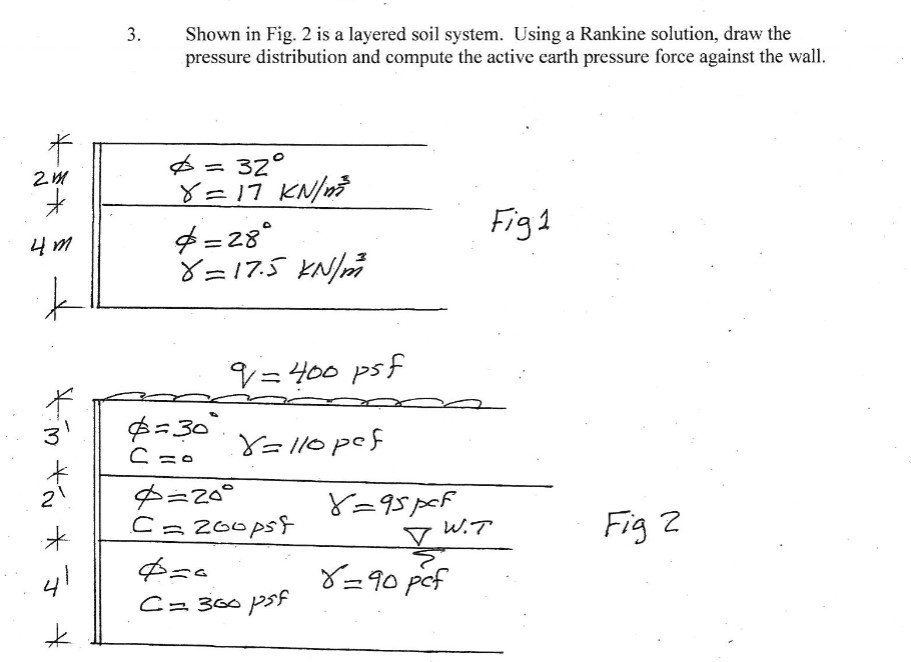 3. Shown in Fig. 2 is a layered soil system. Using a Rankine solution, draw the
pressure distribution and compute the active earth pressure force against the wall.
2m
ϕ = 32°
γ = 17 KN/m³
4 m
ϕ = 28°
γ = 17.5 KN/m³
Fig 1
q = 400 psf
3'
ϕ = 30°
C = 0
γ = 110 pcf
2'
ϕ = 20°
C = 200 psf
γ = 95 pcf
W.T
Fig 2
4'
ϕ = 0
C = 300 psf
γ = 90 pcf